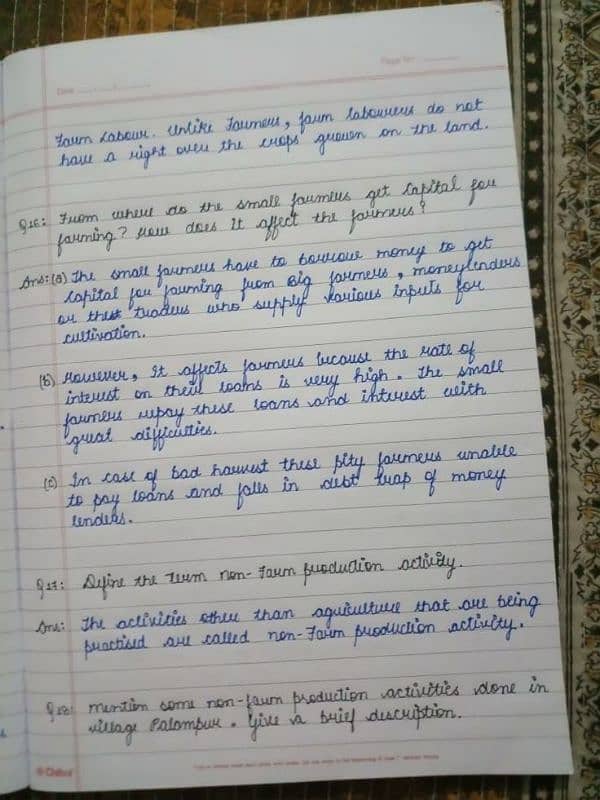 Page No.
Date
Farm Labour. Unlike Farmers, farm labourers do not
have a right over the crops grown on the land.
Q16: From where do the small farmers get Capital for
farming? How does it affect the farmers?
Ans: (a) The small farmers have to borrow money to get
Capital for farming from Big farmers, moneylenders
or the traders who supply various inputs for
cultivation.
(b) However, It affects farmers because the rate of
interest on their loans is very high. The small
farmers repay these loans and interest with
great difficulties.
(c) In case of bad harvest these pity farmers unable
to pay loans and falls in debt trap of money
lenders.
Q17: Define the term non-Farm production activity.
Ans: The activities other than agriculture that are being
practised are called non-Farm production activity.
Q18: Mention some non-farm production activities done in
village Palampur. Give a brief description.